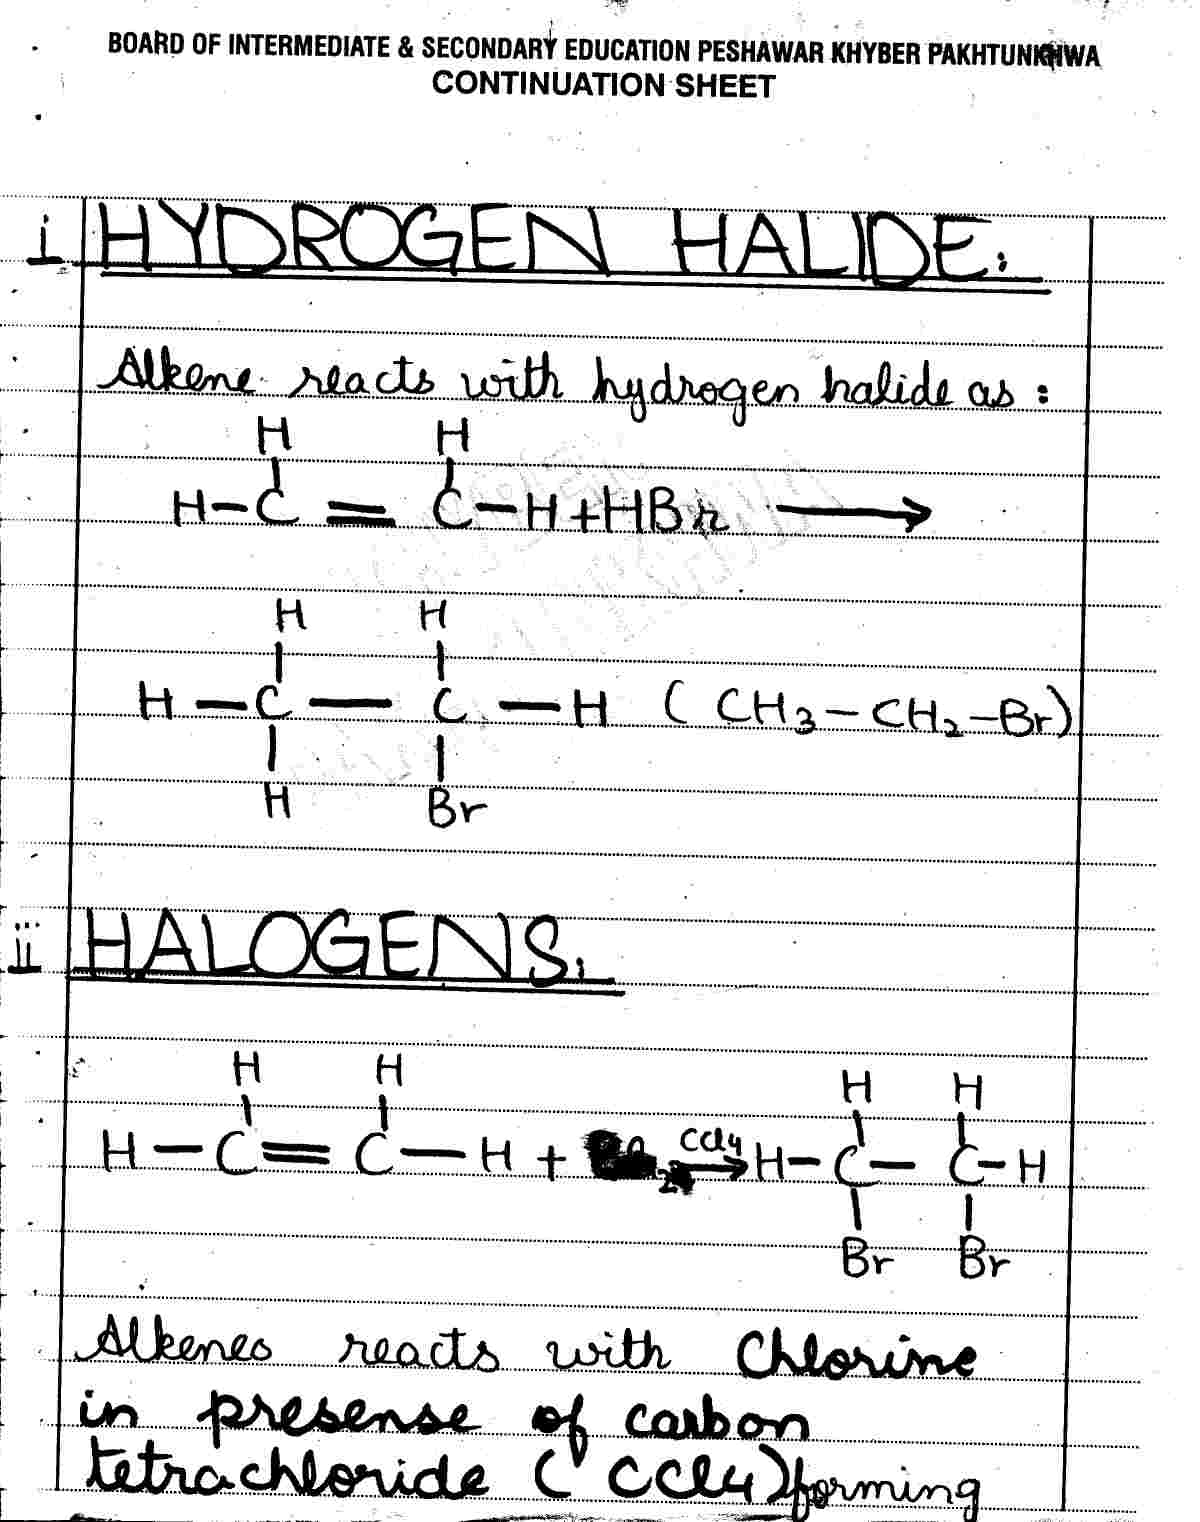 BOARD OF INTERMEDIATE & SECONDARY EDUCATION PESHAWAR KHYBER PAKHTUNKHWA
CONTINUATION SHEET
i HYDROGEN HALIDE:
Alkene reacts with hydrogen halide as :
H H
H-C = C-H+HBr ⟶
H H
H — C — C — H ( CH3 - CH2 - Br)
H Br
ii HALOGENS.
H H H H
H - C = C - H + 2 CCl4 → H - C - C - H
Br Br
Alkenes reacts with Chlorine
in presense of carbon
tetrachloride ( CCl4) forming